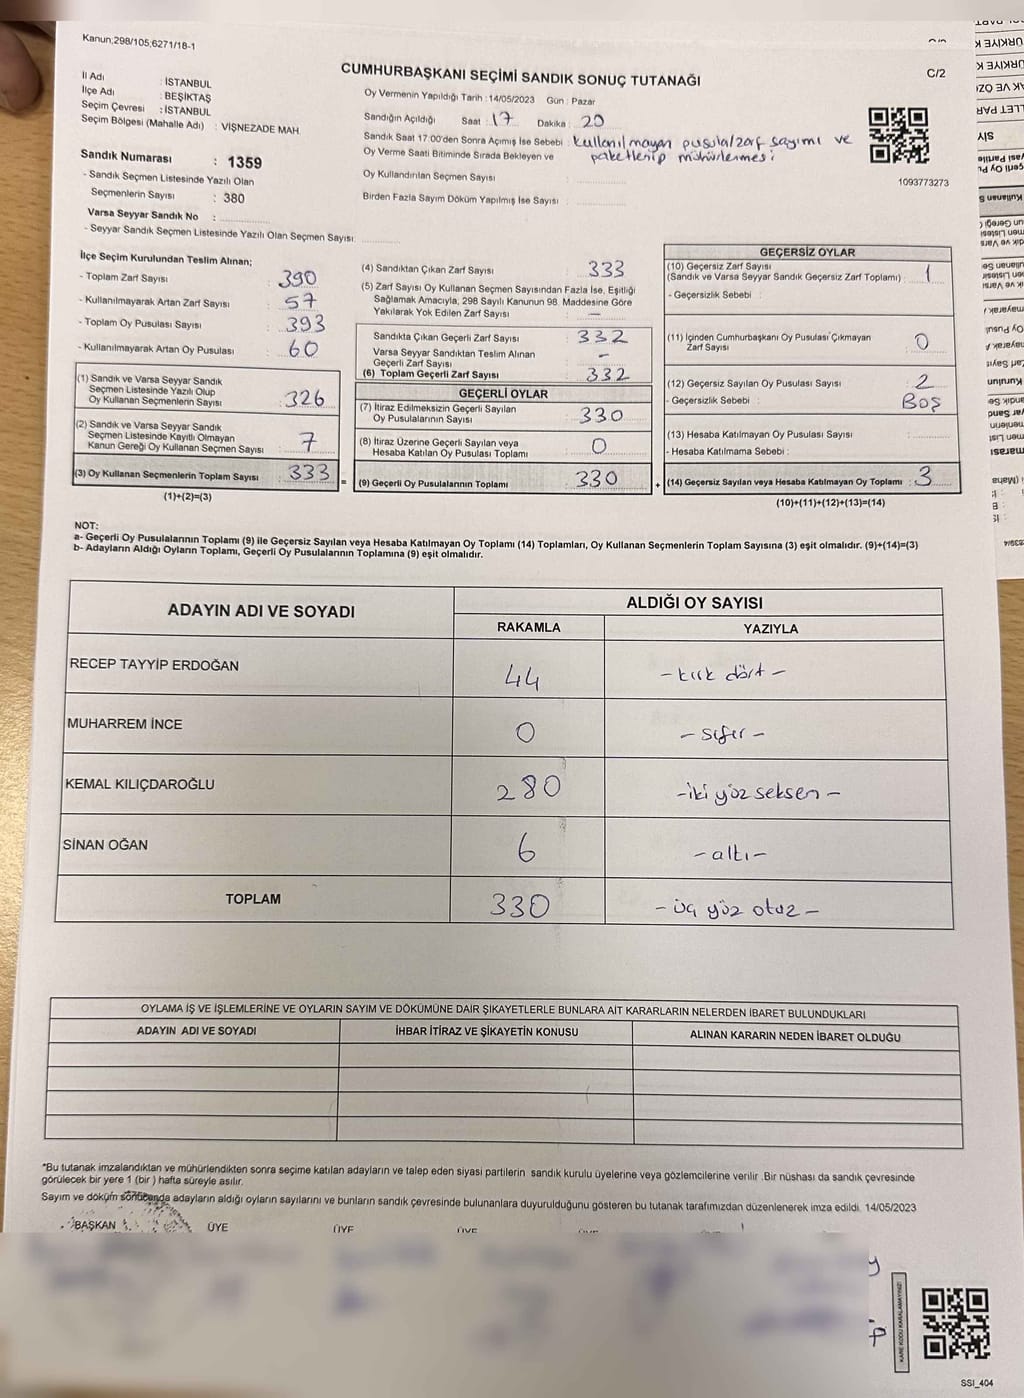 Kanun;298/105;6271/18-1
C/2
CUMHURBAŞKANI SEÇİMİ SANDIK SONUÇ TUTANAĞI
İl Adı : İSTANBUL
İlçe Adı : BEŞİKTAŞ
Seçim Çevresi : İSTANBUL
Seçim Bölgesi (Mahalle Adı) : VİŞNEZADE MAH.
Sandık Numarası : 1359
- Sandık Seçmen Listesinde Yazılı Olan
Seçmenlerin Sayısı : 380
Varsa Seyyar Sandık No :
- Seyyar Sandık Seçmen Listesinde Yazılı Olan Seçmen Sayısı:
Oy Vermenin Yapıldığı Tarih : 14/05/2023 Gün : Pazar
Sandığın Açıldığı Saat : 17 Dakika : 20
Sandık Saat 17:00'den Sonra Açımış İse Sebebi : kullanılmayan pusula/zarf sayımı ve
Oy Verme Saati Bitiminde Sırada Bekleyen ve paketlenip mühürlenmesi
Oy Kullandırılan Seçmen Sayısı :
Birden Fazla Sayım Döküm Yapılmış İse Sayısı :
1093773273
İlçe Seçim Kurulundan Teslim Alınan;
- Toplam Zarf Sayısı : 390
- Kullanılmayarak Artan Zarf Sayısı : 57
- Toplam Oy Pusulası Sayısı : 393
- Kullanılmayarak Artan Oy Pusulası : 60
(1) Sandık ve Varsa Seyyar Sandık
Seçmen Listesinde Yazılı Olup
Oy Kullanan Seçmenlerin Sayısı : 326
(2) Sandık ve Varsa Seyyar Sandık
Seçmen Listesinde Kayıtlı Olmayan
Kanun Gereği Oy Kullanan Seçmen Sayısı : 7
(3) Oy Kullanan Seçmenlerin Toplam Sayısı : 333
(1)+(2)=(3)
=
(4) Sandıktan Çıkan Zarf Sayısı : 333
(5) Zarf Sayısı Oy Kullanan Seçmen Sayısından Fazla İse, Eşitliği
Sağlamak Amacıyla, 298 Sayılı Kanunun 98. Maddesine Göre
Yakılarak Yok Edilen Zarf Sayısı : —
Sandıkta Çıkan Geçerli Zarf Sayısı : 332
Varsa Seyyar Sandıktan Teslim Alınan
Geçerli Zarf Sayısı : -
(6) Toplam Geçerli Zarf Sayısı : 332
GEÇERLİ OYLAR
(7) İtiraz Edilmeksizin Geçerli Sayılan
Oy Pusulalarının Sayısı : 330
(8) İtiraz Üzerine Geçerli Sayılan veya
Hesaba Katılan Oy Pusulası Toplamı : 0
(9) Geçerli Oy Pusulalarının Toplamı : 330
+
GEÇERSİZ OYLAR
(10) Geçersiz Zarf Sayısı
(Sandık ve Varsa Seyyar Sandık Geçersiz Zarf Toplamı) : 1
- Geçersizlik Sebebi :
(11) İçinden Cumhurbaşkanı Oy Pusulası Çıkmayan
Zarf Sayısı : 0
(12) Geçersiz Sayılan Oy Pusulası Sayısı : 2
- Geçersizlik Sebebi : Boş
(13) Hesaba Katılmayan Oy Pusulası Sayısı :
- Hesaba Katılmama Sebebi :
(14) Geçersiz Sayılan veya Hesaba Katılmayan Oy Toplamı : 3
(10)+(11)+(12)+(13)=(14)
NOT:
a- Geçerli Oy Pusulalarının Toplamı (9) ile Geçersiz Sayılan veya Hesaba Katılmayan Oy Toplamı (14) Toplamları, Oy Kullanan Seçmenlerin Toplam Sayısına (3) eşit olmalıdır. (9)+(14)=(3)
b- Adayların Aldığı Oyların Toplamı, Geçerli Oy Pusulalarının Toplamına (9) eşit olmalıdır.
ADAYIN ADI VE SOYADI
ALDIĞI OY SAYISI
RAKAMLA YAZIYLA
RECEP TAYYİP ERDOĞAN 44 - kırk dört -
MUHARREM İNCE 0 - sıfır -
KEMAL KILIÇDAROĞLU 280 - iki yüz seksen -
SİNAN OĞAN 6 - altı -
TOPLAM 330 - üç yüz otuz -
OYLAMA İŞ VE İŞLEMLERİNE VE OYLARIN SAYIM VE DÖKÜMÜNE DAİR ŞİKAYETLERLE BUNLARA AİT KARARLARIN NELERDEN İBARET BULUNDUKLARI
ADAYIN ADI VE SOYADI İHBAR İTİRAZ VE ŞİKAYETİN KONUSU ALINAN KARARIN NEDEN İBARET OLDUĞU
*Bu tutanak imzalandıktan ve mühürlendikten sonra seçime katılan adayların ve talep eden siyasi partilerin sandık kurulu üyelerine veya gözlemcilerine verilir .Bir nüshası da sandık çevresinde
görülecek bir yere 1 (bir ) hafta süreyle asılır.
Sayım ve döküm sonucunda adayların aldığı oyların sayılarını ve bunların sandık çevresinde bulunanlara duyurulduğunu gösteren bu tutanak tarafımızdan düzenlenerek imza edildi. 14/05/2023
BAŞKAN ÜYE ÜYE ÜYE
KARE KODU KARALAMAYINIZ!
SSI_404